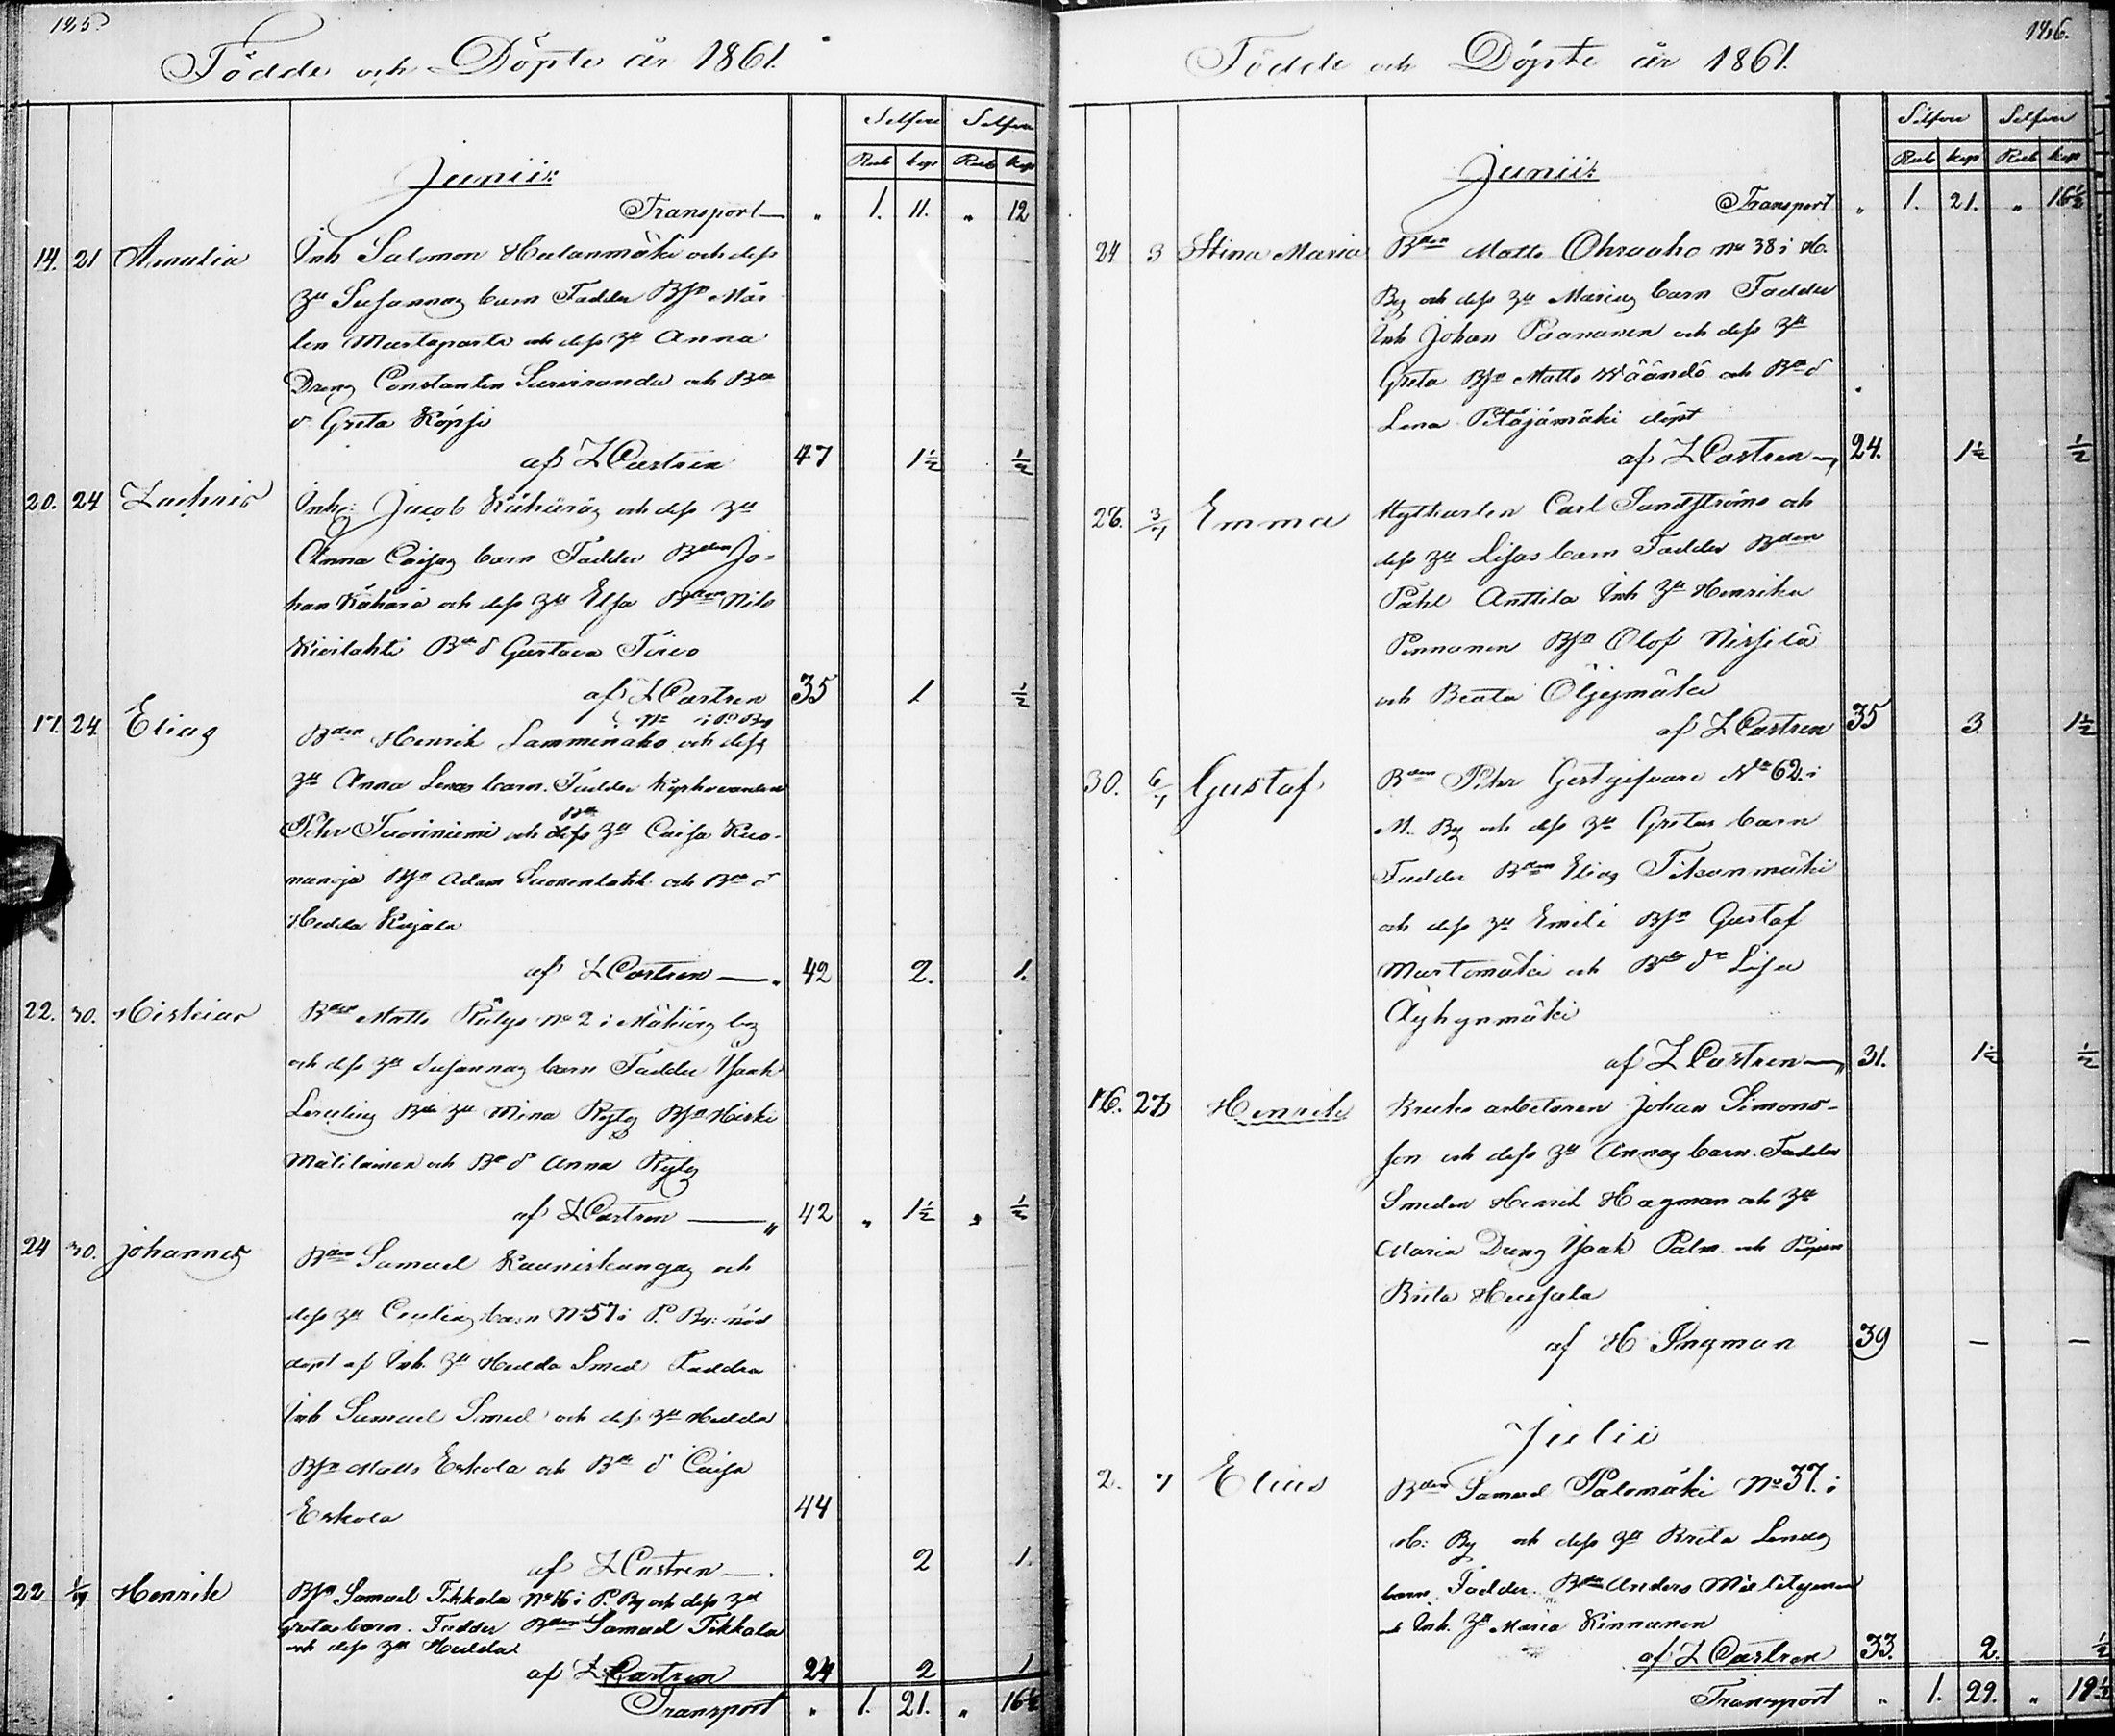 185.
Födde och Döpte år 1861.
Silfver Silfver
Rub kop Rub kop
Junii:
Transport — „ 1. 11. „ 12
14. 21 Amalia Inh Salomon Hulanmäki och dess
hu Susannas barn Faddr Bsn Mår
ten Mustaparta och dess hu Anna
Dreng Constantin Suriranda och Bde
d Greta Köpsi
af Z Castren 47 1½ ½
20. 24 Zachris Inh: Jacob Kähäräs och dess hu
Anna Caisas barn Fadder Bden Jo-
han Kähärä och dess hu Elsa Bden Nils
Kivilahti Bde d Gustava Törvo
af Z Castren 35 1 ½
17. 24. Elias Bden Henrik Lamminaho No i P. By och dess
hu Anna Lenas barn. Fadder Kyrkovärden
Pehr Tuoriniemi och hu Caisa Kuo-
nanoja Bsn Adam Suonenlahti och Bde d
Hedda Kujala
af Z Castren — 42 2. 1.
22. 30. Hiskias Bden Matts Rytys No 2 i Mökiös by
och dess hu Susannas barn Fadder Isaak
Bde hu Mina Rytys Bsn Hiski
Mätilainen och Bde d Anna Rytys
af Z Castren — „ 42 „ 1½ „ ½
24 30. Johannes Bden Samuel Kauniskangas och
dess hu Cecilias barn No 57 i P. By: nöd
döpt af Inh. hu Hedda Smed Faddra
Inh Samuel Smed och dess hu Hedda
Bsn Matts Eskola och Bde d Caisa
Eskola 44
af Z Castren — 2 1.
22 1/7 Henrik Bsn Samuel Tikkala No 16 i P. By och dess hu
Gretas barn. Fadder Bden Samuel Tikkala
och dess hu Hedda
af Z. Castren 24 2 1
Transport „ 1. 21. „ 16½
186.
Födde och Döpte år 1861.
Silfver Silfver
Rub kop Rub kop
Junii:
Transport „ 1. 21. „ 16½
24 3 Stina Maria Bden Matts Ohraaho No 38 i H.
By och dess hu Marias barn Fadder
Inh Johan Paananen och dess hu
Greta Bsn Matts Wäändö och Bde d
Lena Pitäjämäki döpt
af Z Castren — 24. 1½ ½
28. 3/7 Emma Hytkarlen Carl Sandströms och
dess hu Lisas barn Fadder Bden
Påhl Anttila Inh hu Henrika
Pennanen Bsn Olof Nissilä
och Beata Öljymäki
af Z Castren 35 3. 1½
30. 6/7 Gustaf Bden Pehr Gestgifvare No 62. i
M. By och dess hu Gretas barn
Fadder Bden Elias Tikanmäki
och dess hu Emili Bsn Gustaf
Mustamäki och Bde dr Lisa
Äyhynmäki
af Z Castren — 31. 1½ ½
16. 23 Henrik Bruks arbetaren Johan Simons-
son och dess hu Annas barn. Fadder
Smeden Henrik Hagman och hu
Maria Dreng Isaak Palm. och Pigan
Brita Huusala
af H Ingman 39 — —
Julii
2. 7 Elias Bden Samuel Palomäki No 37. i
H: By och dess hu Brita Lenas
barn. Fadder. Bden Anders
och Inh. hu Maria Kinnunen
af Z Castren 33. 2. ½
Transport „ 1. 29. „ 19½